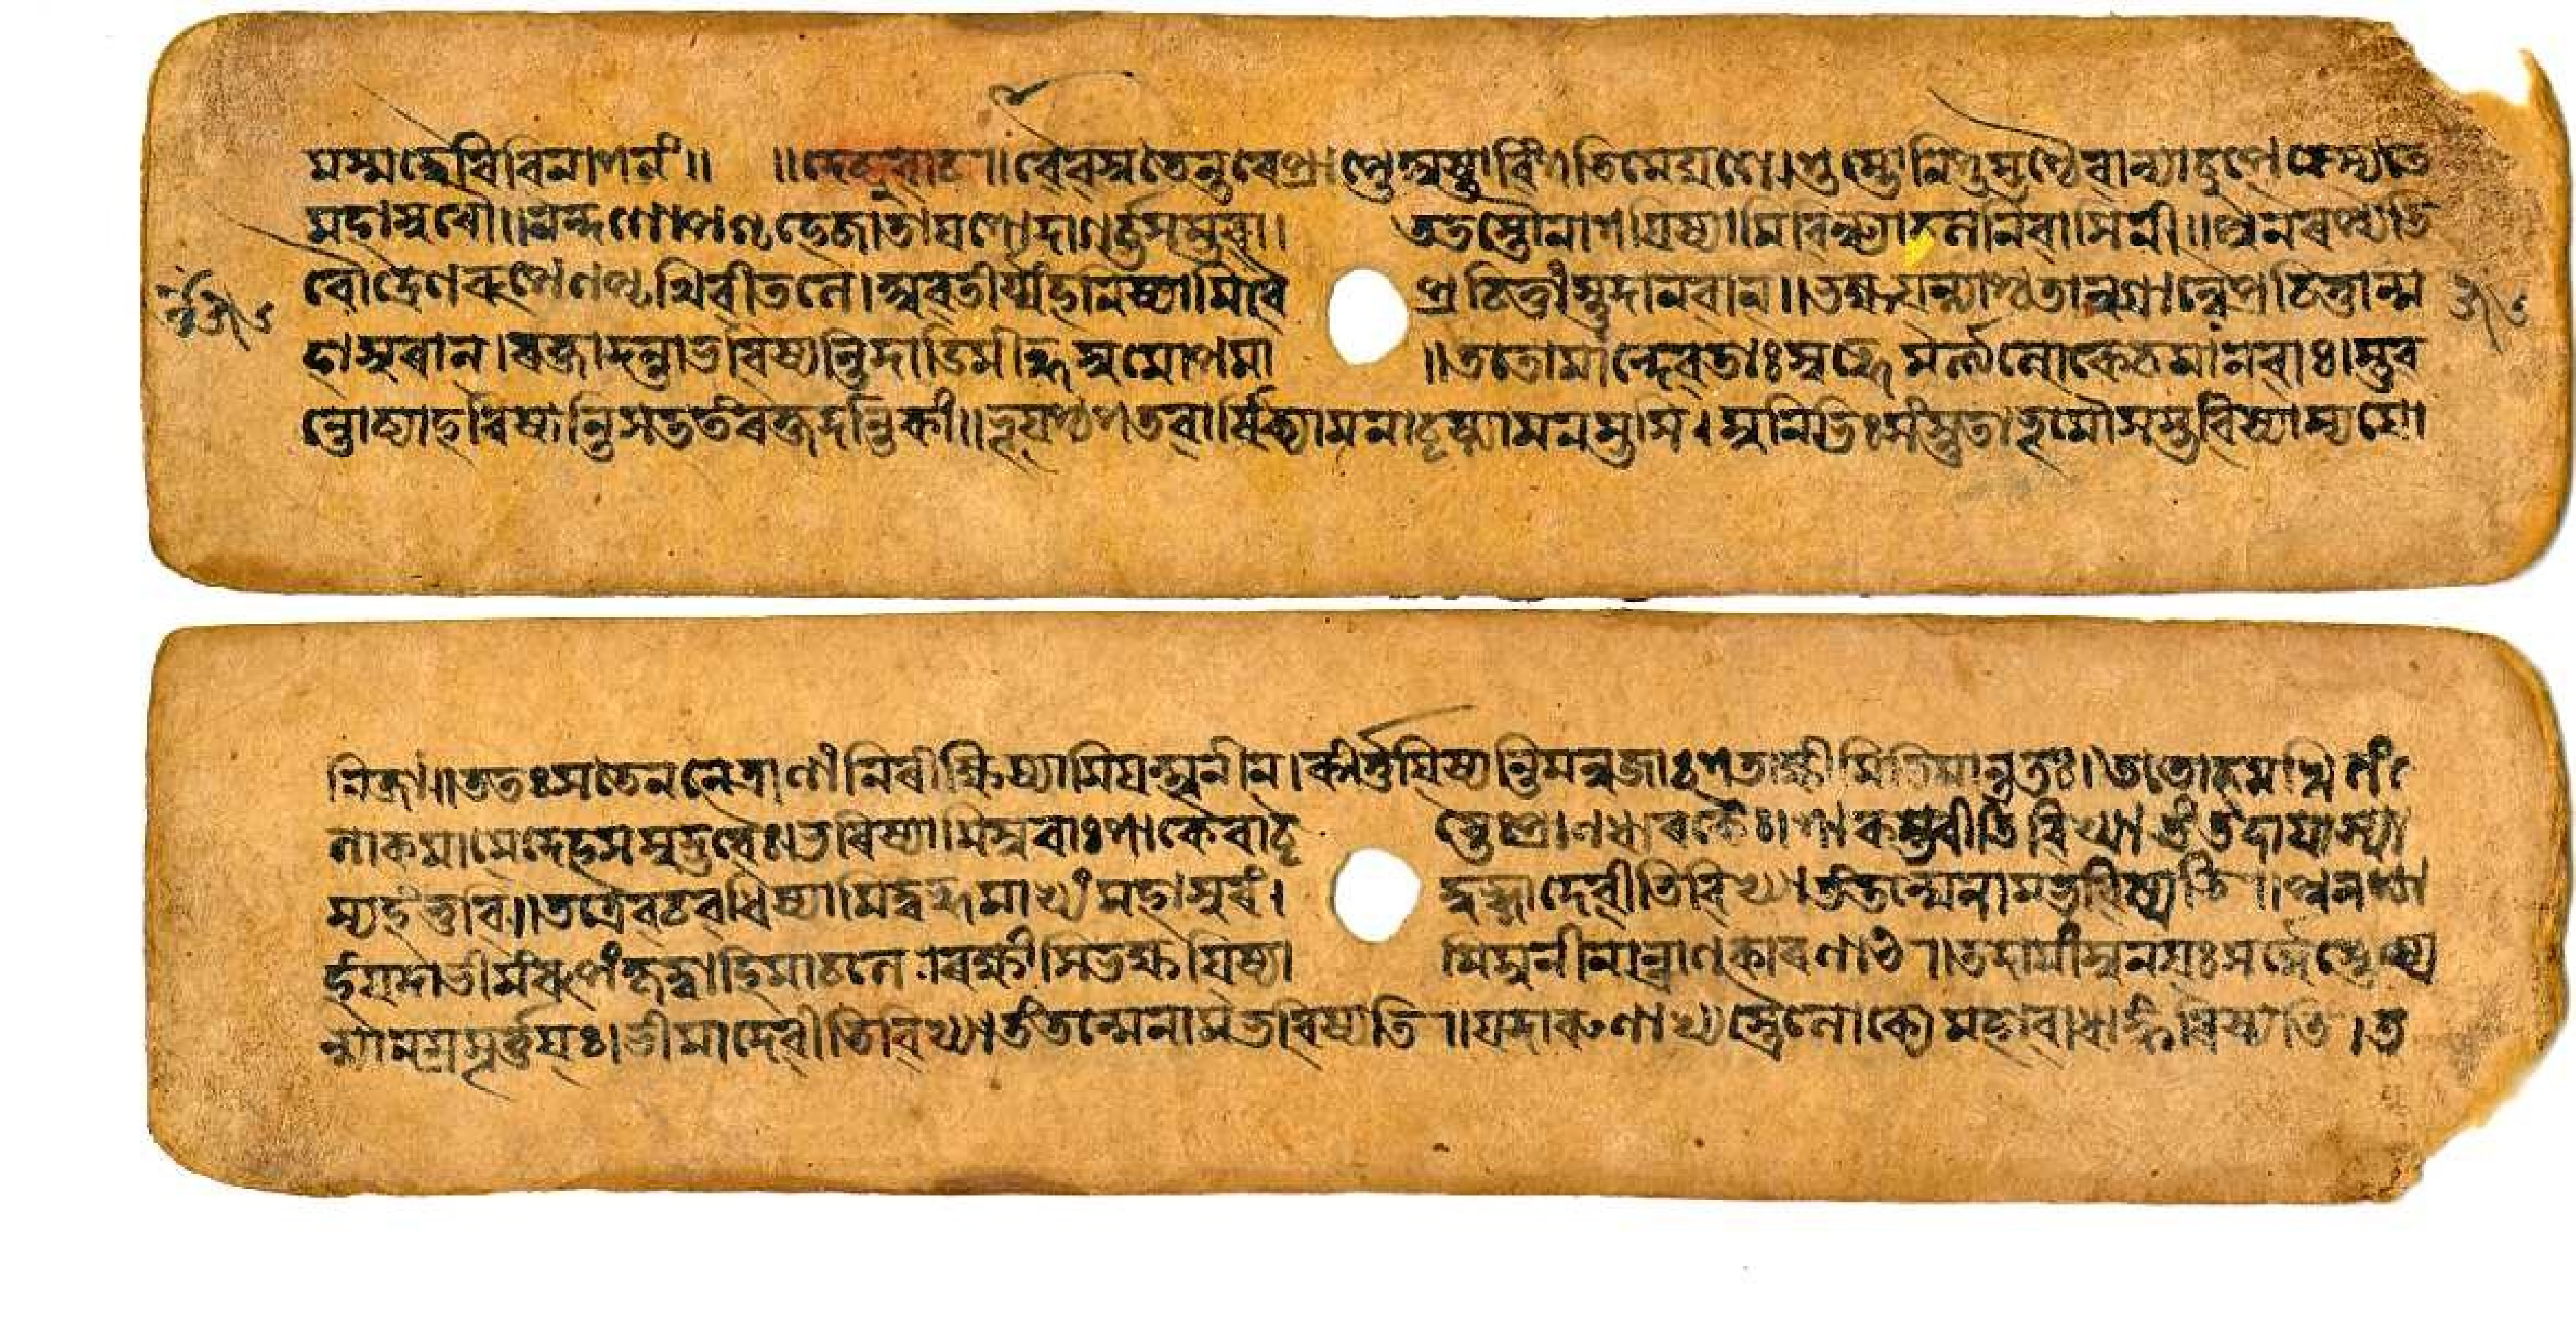 মস্মদ্বৈরিবিনাশনং॥ ॥দেব্যুবাচ॥বৈবস্বতেন্তরেপ্রাপ্তেঅষ্টাবিংশতিমেযুগে।শুম্ভোনিশুম্ভশ্চৈবান্যাবুৎপৎস্যেতে
মহাসুরৌ॥নন্দগোপগৃহেজাতাযশোদাগর্ভসম্ভবা। ততস্তৌনাশযিষ্যামিবিন্ধ্যাচলনিবাসিনী॥পুনরপ্যতি
রৌদ্রেণরূপেণপৃথিবীতলে।অবতীর্য্যহনিষ্যামিবৈ প্রচিত্তাংস্তুদানবান্॥ভক্ষযন্ত্যাশ্চতানুগ্রান্বৈপ্রচিত্তান্ম
হাসুরান্।রক্তাদন্তাভবিষ্যন্তিদাডিমীকুসুমোপমা ॥ততোমান্দেবতাঃস্বর্গেমর্ত্যলোকেচমানবাঃ।স্তুব
ন্তোব্যাহরিষ্যন্তিসততংরক্তদন্তিকাং॥ভূযশ্চশতবার্ষিক্যামনাবৃষ্ট্যামনম্ভসি।মুনিভিঃসংস্তুতাভূমৌসম্ভবিষ্যাম্যযো
নিজা॥ততঃসতেননেত্রাণাংনিরীক্ষিষ্যামিযন্মুনীন্।কীর্ত্তযিষ্যন্তিমনুজাঃশতাক্ষীমিতিমান্ততঃ।ততোহমখিলং
লোকমাত্মদেহসমুদ্ভবৈঃ।ভরিষ্যামিসুরাঃশাকৈরাবৃ ষ্টেঃপ্রাণধারকৈঃ।শাকম্ভরীতিবিখ্যাতিংতদাযাস্যা
ম্যহংভুবি॥তত্রৈবচবধিষ্যামিদুর্গমাখ্যংমহাসুরং। দুর্গাদেবীতিবিখ্যাতংতন্মেনামভবিষ্যতি॥পুনশ্চা
হংযদাভীমংরূপংকৃত্বাহিমাচলে।রক্ষাংসিভক্ষযিষ্যা মিমুনীনান্ত্রাণকারণাৎ॥তদামাংমুনযঃসর্ব্বেস্তোষ্য
ন্ত্যানম্রমূর্ত্তযঃ।ভীমাদেবীতিবিখ্যাতংতন্মেনামভবিষ্যতি॥যদারুণাখ্যস্ত্রৈলোক্যেমহাবাধাঙ্করিষ্যতি।ত